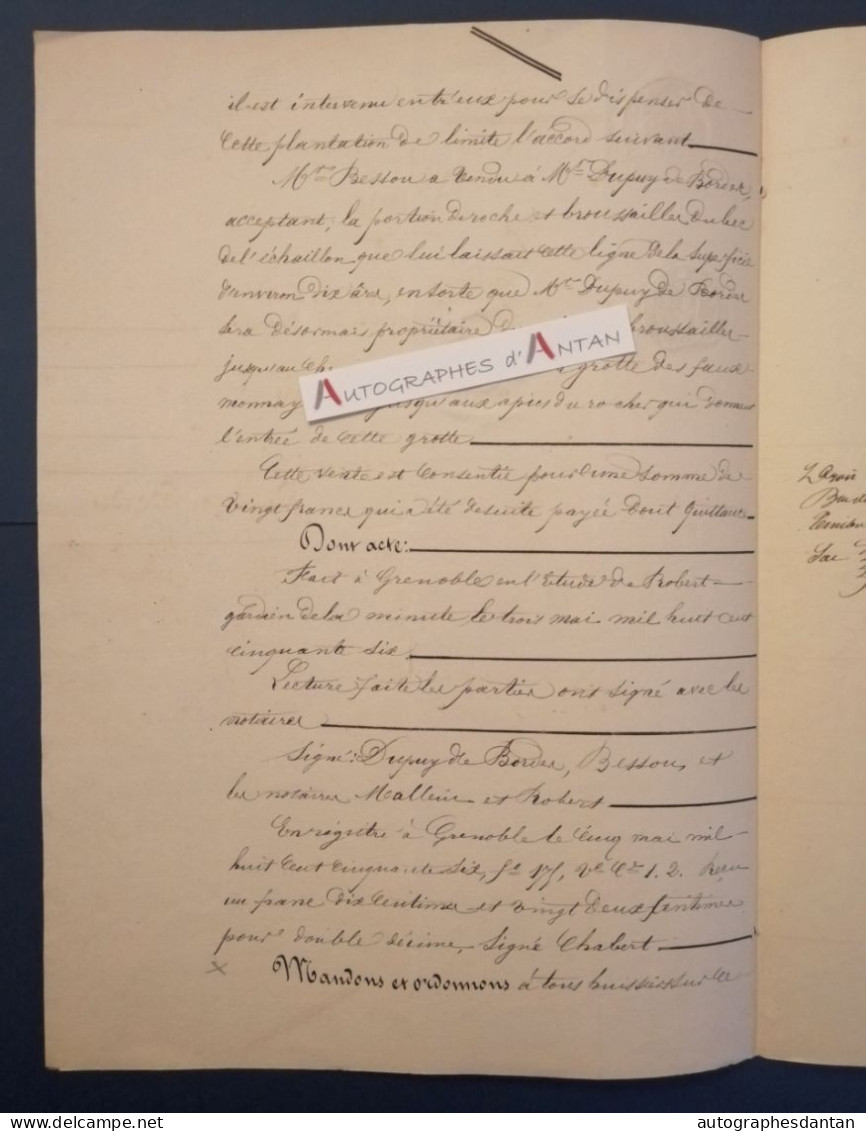 il est intervenu entr'eux pour se dispenser de
cette plantation de limite l'accord suivant
Mr Bessou a vendu à Mr Dupuy de Bordes,
acceptant, la portion de roche et broussailles du bec
de l'échaillon que lui laissait cette ligne de la superficie
d'environ dix âres, en sorte que Mr Dupuy de Bordes
sera désormais propriétaire broussailles
jusqu'au grotte des faux
monnay jusqu'aux apics du rocher qui domine
l'entrée de cette grotte
Cette vente est consentie pour une somme de
vingt francs qui a été desuite payée dont quittance
Dont acte:
Fait à Grenoble en l'Etude de Robert
gardien de la minute le trois mai mil huit cent
cinquante six.
Lecture faite les parties ont signé avec les
notaires
Signé: Dupuy de Bordes, Bessou, et
les notaires Mallein et Robert
Enregistré à Grenoble le cinq mai mil
huit cent cinquante six, fo 175, Vo Ce 1.2. Reçu
un franc dix centimes et vingt deux centimes
pour double décime, signé Chabert
Mandons et ordonnons à tous huissiers sur ce
AUTOGRAPHES d'ANTAN
autographesdantan